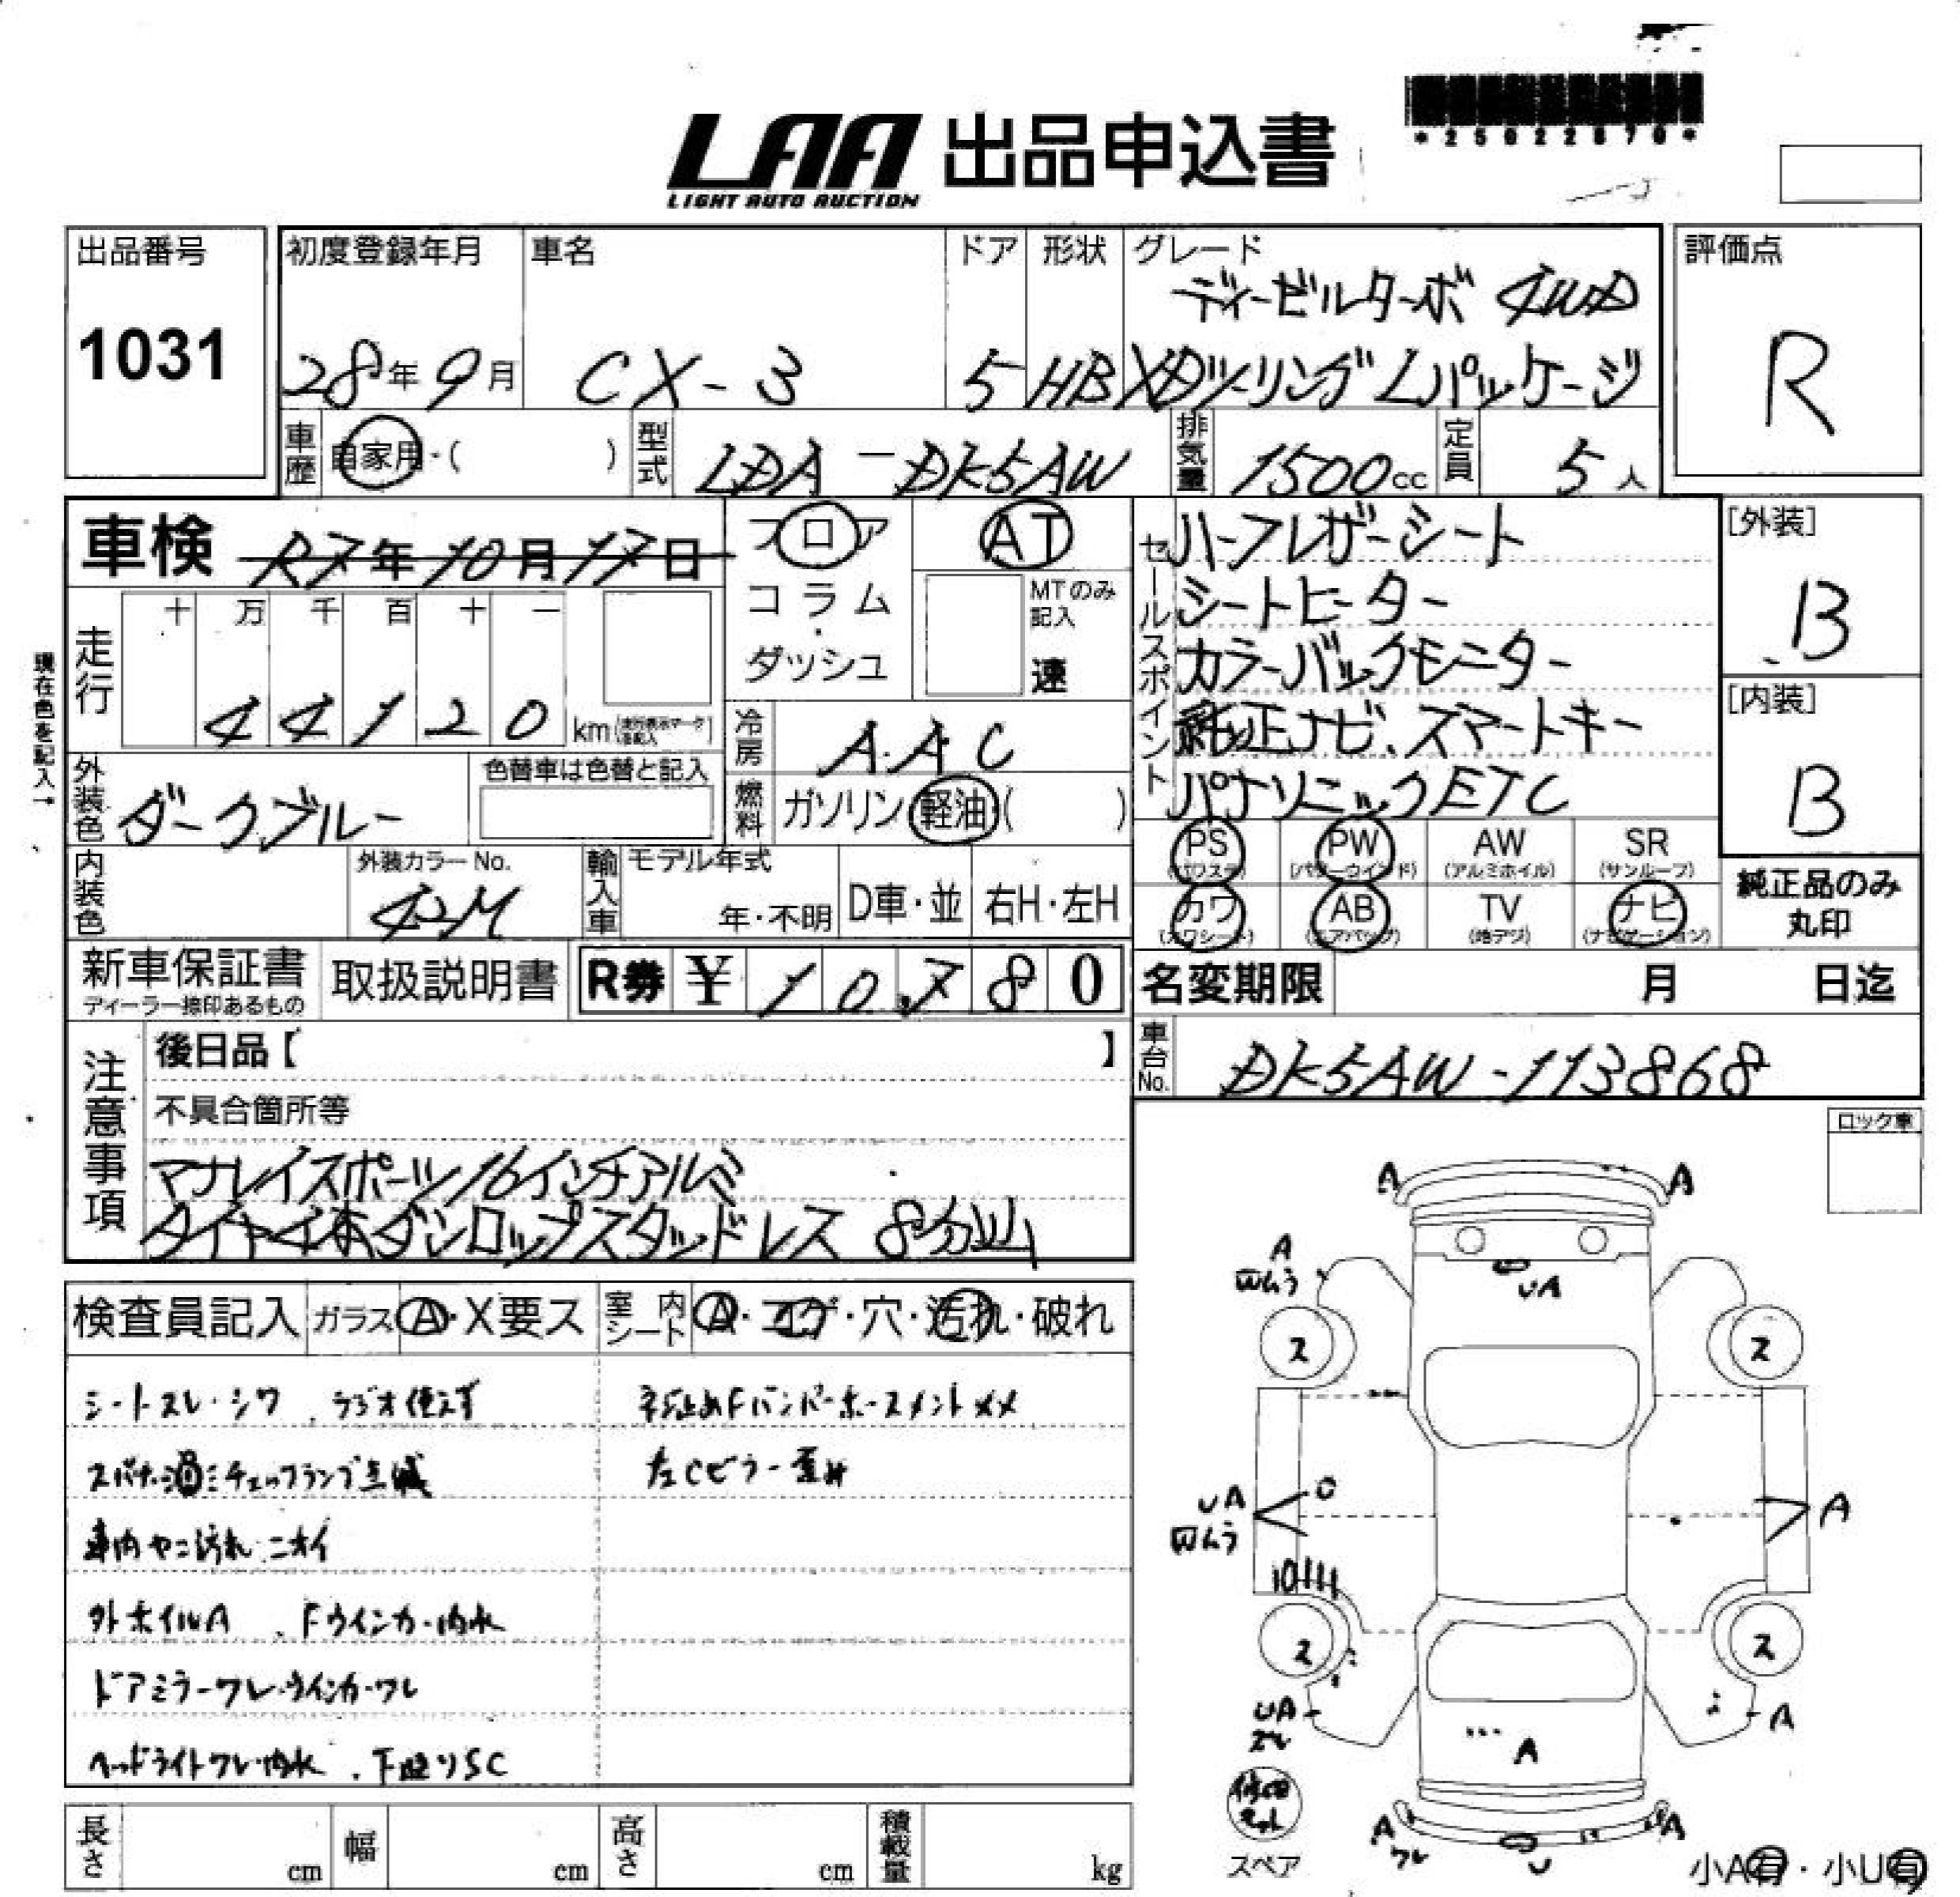 *25022870*
LAA 出品申込書
LIGHT AUTO AUCTION
出品番号
1031
初度登録年月
28年9月
車名
CX-3
ドア
5
形状
HB
グレード
ディーゼルターボ 4WD
XDツーリング Lパッケージ
評価点
R
車歴
自家用・( )
型式
LDA-DK5AW
排気量
1500cc
定員
5人
車検 R7年10月17日
フロア
コラム
・
ダッシュ
AT
MTのみ
記入
速
セールスポイント
ハーフレザーシート
シートヒーター
カラーバックモニター
純正ナビ、スマートキー
パナソニックETC
[外装]
B
[内装]
B
現在色を記入→
走行
十 万 千 百 十 一
44120 km
冷房
A.A.C
外装色
ダークブルー
色替車は色替と記入
燃料
ガソリン・軽油( )
PS
(パワステ)
PW
(パワーウインド)
AW
(アルミホイル)
SR
(サンルーフ)
カワ
(カワシート)
AB
(エアバッグ)
TV
(地デジ)
ナビ
(ナビゲーション)
純正品のみ
丸印
内装色
外装カラーNo.
42M
輸入車
モデル年式
年・不明
D車・並
右H・左H
新車保証書
ディーラー捺印あるもの
取扱説明書
R券 ¥ 10,780
名変期限 月 日迄
車台No.
DK5AW-113868
注意事項
後日品【 】
不具合箇所等
マナレイスポーツ16インチアルミ
タイヤ4本ダンロップスタッドレス 8分山
ロック車
検査員記入
ガラス
A・X要ス
室内シート
A・コゲ・穴・汚れ・破れ
シートスレ・シワ、ラジオ使えず
スパナ・油・チェックランプ点滅
車内ヤニ汚れ ニオイ
外ホイルA、Fウインカー内水
ドアミラーワレ・ウインカーワレ
ヘッドライトワレ・内水、下廻りSC
Fバンパーホースメント
左Cピラー
A
A
A
UA
ス
ス
UA
A
ス
ス
UA
A
A
スペア
A
ワレ
U
A
小A有・小U有
長さ cm
幅 cm
高さ cm
積載量 kg